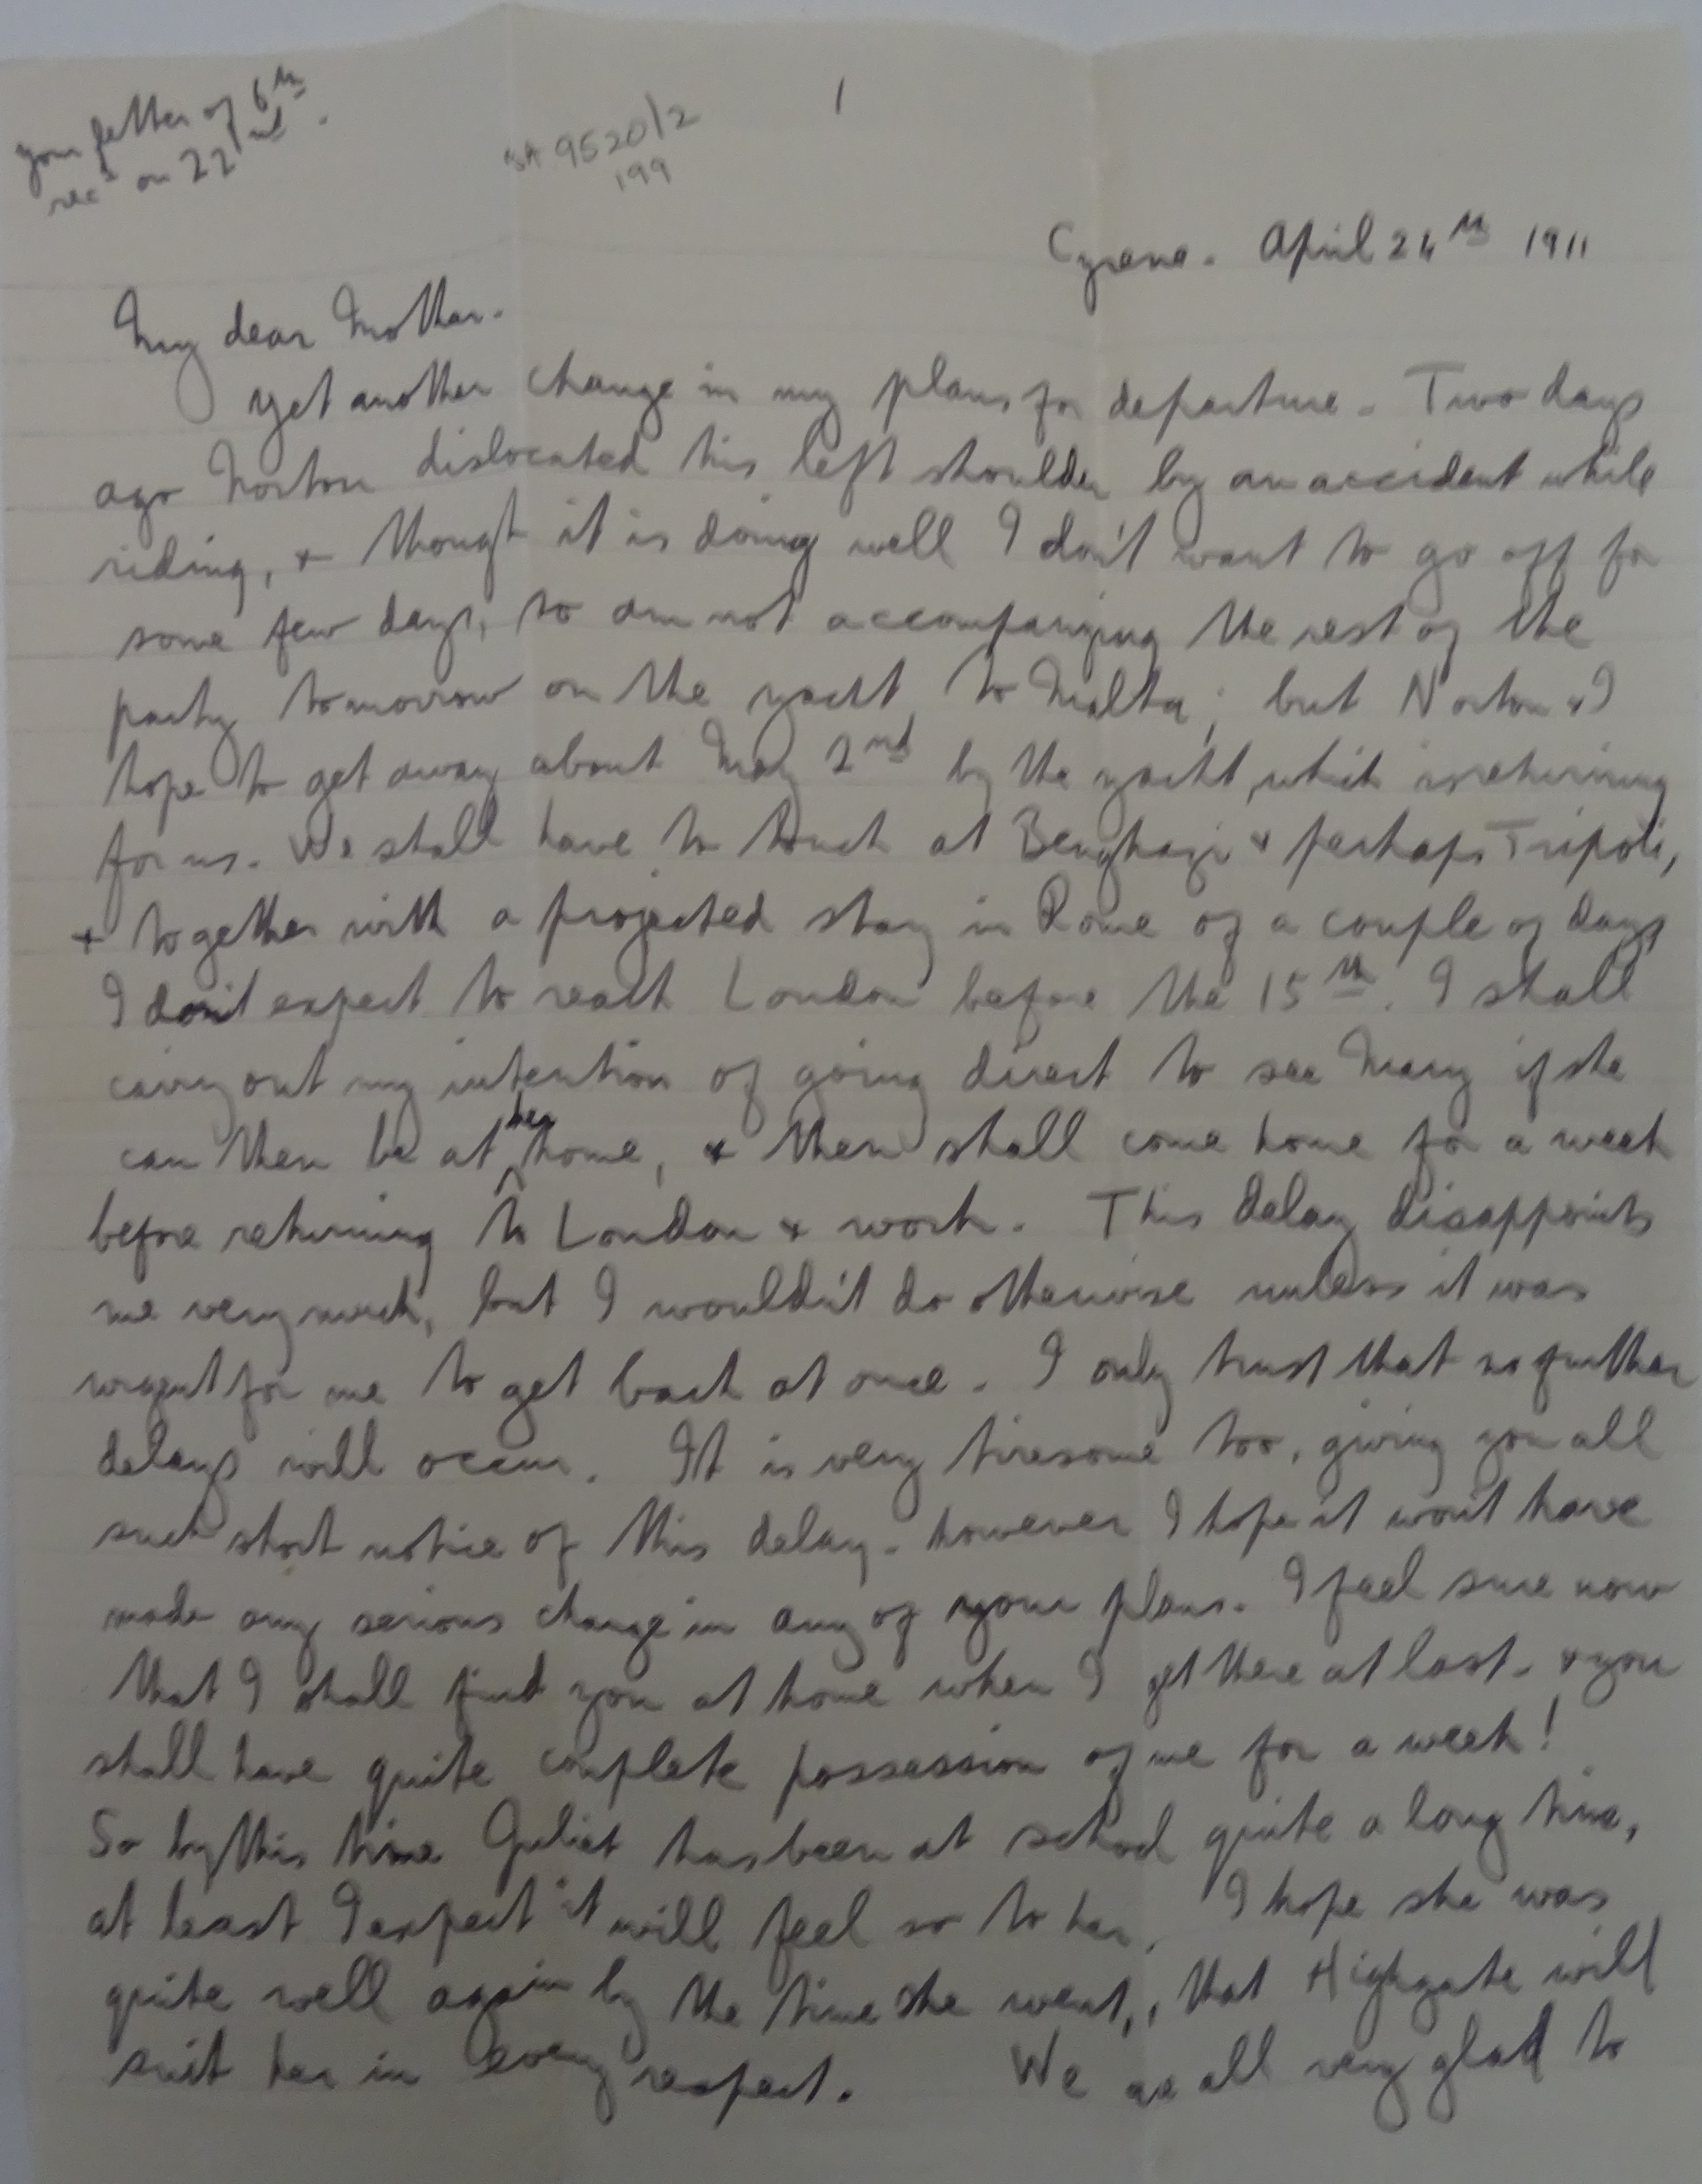 your letter of 6th
recd on 22nd.
1
9520/2
199
Cyrene. April 24th 1911
My dear Mother.
yet another change in my plans for departure. Two days
ago Norton dislocated his left shoulder by an accident while
riding, & though it is doing well I don't want to go off for
some few days, so am not accompanying the rest of the
party tomorrow on the yacht to Malta; but Norton & I
hope to get away about May 2nd by the yacht, which is returning
for us. We shall have to touch at Benghazi & perhaps Tripoli,
& together with a projected stay in Rome of a couple of days
I don't expect to reach London before the 15th. I shall
carry out my intention of going direct to see Mary if she
can then be at her home, & then shall come home for a week
before returning to London & work. This delay disappoints
me very much, but I wouldn't do otherwise unless it was
urgent for me to get back at once. I only trust that no further
delays will occur. It is very tiresome too, giving you all
such short notice of this delay - however I hope it won't have
made any serious change in any of your plans. I feel sure now
that I shall find you at home when I get there at last - & you
shall have quite complete possession of me for a week!
So by this time Juliet has been at school quite a long time,
at least I expect it will feel so to her. I hope she was
quite well again by the time she went, that Highgate will
suit her in every respect. We are all very glad to